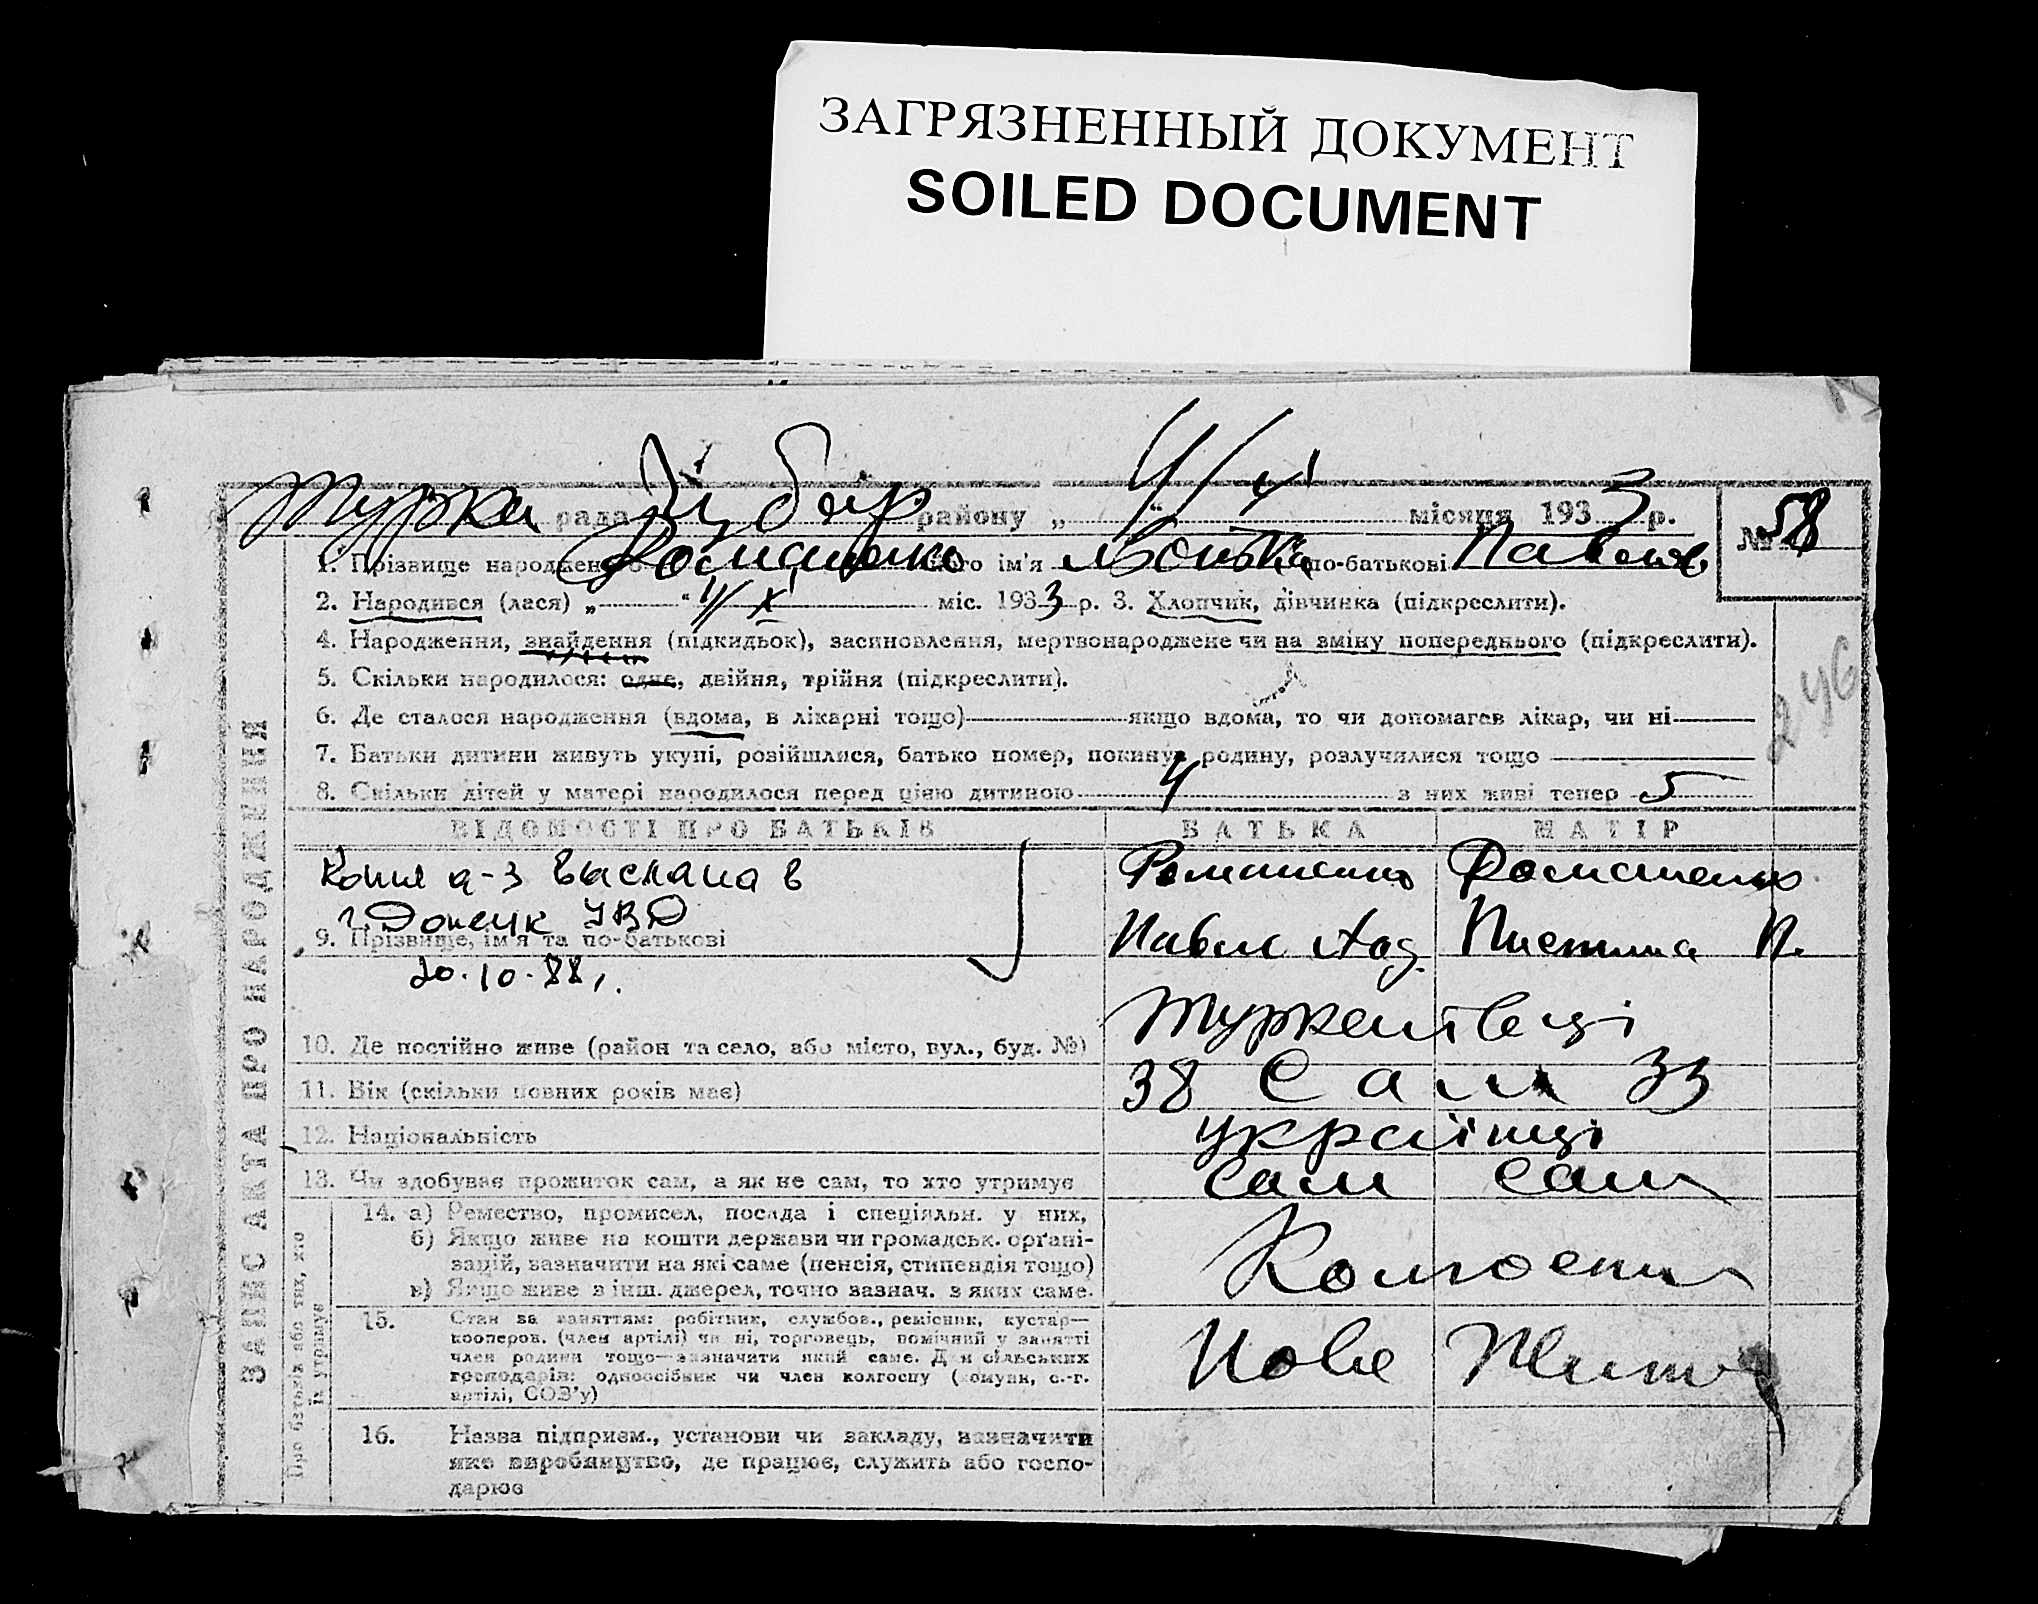 ЗАГРЯЗНЕННЫЙ ДОКУМЕНТ
SOILED DOCUMENT
рада району „ 4/XI місяця 1933 р. № 58
1. Прізвище народжен Романенко ім'я по-батькові Павлов
2. Народився (лася) „ " 4/XI міс. 1933 р. 3. Хлопчик, дівчинка (підкреслити).
4. Народження, знайдення (підкидьок), засиновлення, мертвонароджене чи на зміну попереднього (підкреслити).
5. Скільки народилося: одне, двійня, трійня (підкреслити).
246
6. Де сталося народження (вдома, в лікарні тощо) якщо вдома, то чи допомагав лікар, чи ні
7. Батьки дитини живуть укупі, розійшлися, батько помер, покинув родину, розлучилися тощо
8. Скільки дітей у матері народилося перед цією дитиною 4 з них живі тепер 5
ВІДОМОСТІ ПРО БАТЬКІВ БАТЬКА МАТІР
Копия а-з выслана в
г. Донецк УВД
20.10.88г.
9. Прізвище, ім'я та по-батькові
Романенко Романенко
Павло П.
10. Де постійно живе (район та село, або місто, вул., буд. №)
11. Вік (скільки повних років має) 38 33
12. Національність українці
13. Чи здобуває прожиток сам, а як не сам, то хто утримує сам сам
14. а) Ремество, промисел, посада і спеціяльн. у них,
б) Якщо живе на кошти держави чи громадськ. органі-
зацій, зазначити на які саме (пенсія, стипендія тощо)
в) Якщо живе з інш. джерел, точно зазнач. з яких саме.
15. Стан за заняттям: робітник, службов., ремісник, кустар—
кооперов. (член артілі) чи ні, торговець, помічний у занятті
член родини тощо—зазначити який саме. Для сільських
господарів: одноосібник чи член колгоспу (комуни, с.-г.
артілі, СОЗ'у)
Нове
16. Назва підприєм., установи чи закладу, зазначити
яке виробництво, де працює, служить або госпо-
дарює
ЗАПИС АКТА ПРО НАРОДЖЕННЯ
Про батьків або тих, хто
їх утримує